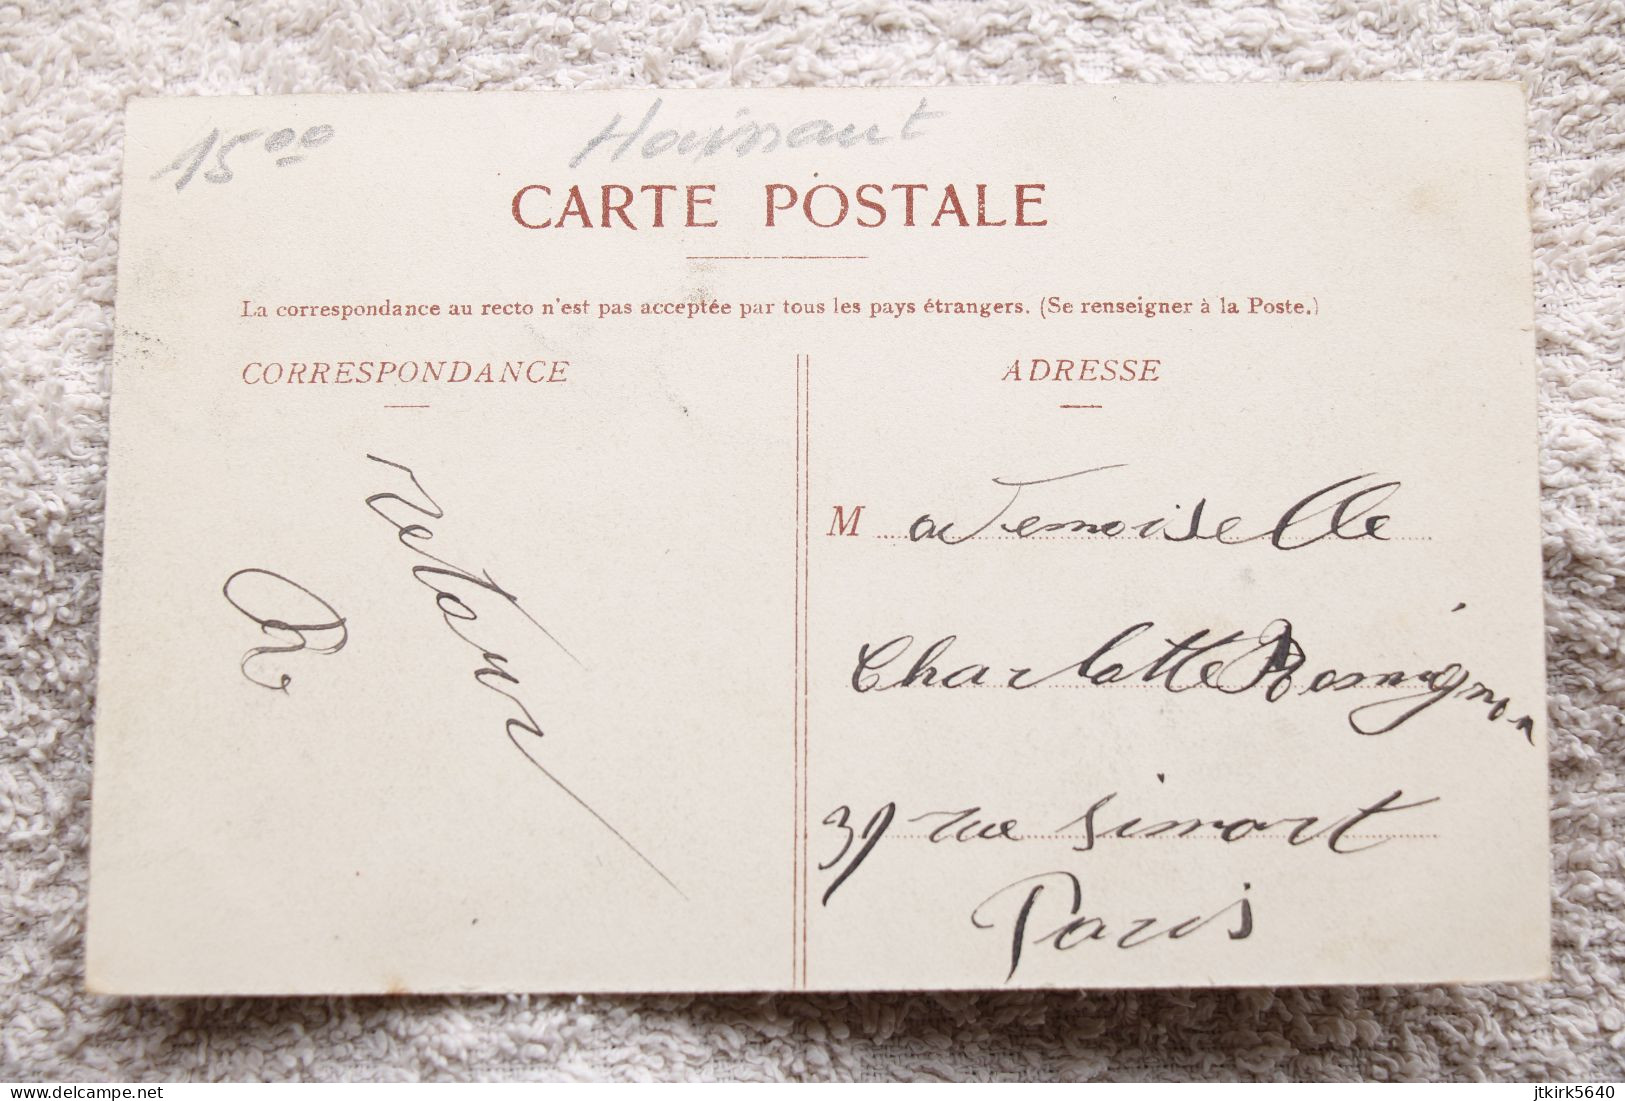 15 00
Hainaut
CARTE POSTALE
La correspondance au recto n'est pas acceptée par tous les pays étrangers. (Se renseigner à la Poste.)
CORRESPONDANCE
retour
R
ADRESSE
Mademoiselle
Charlotte Romignon
39 rue Simart
Paris
www.delcampe.net
jtkirk5640